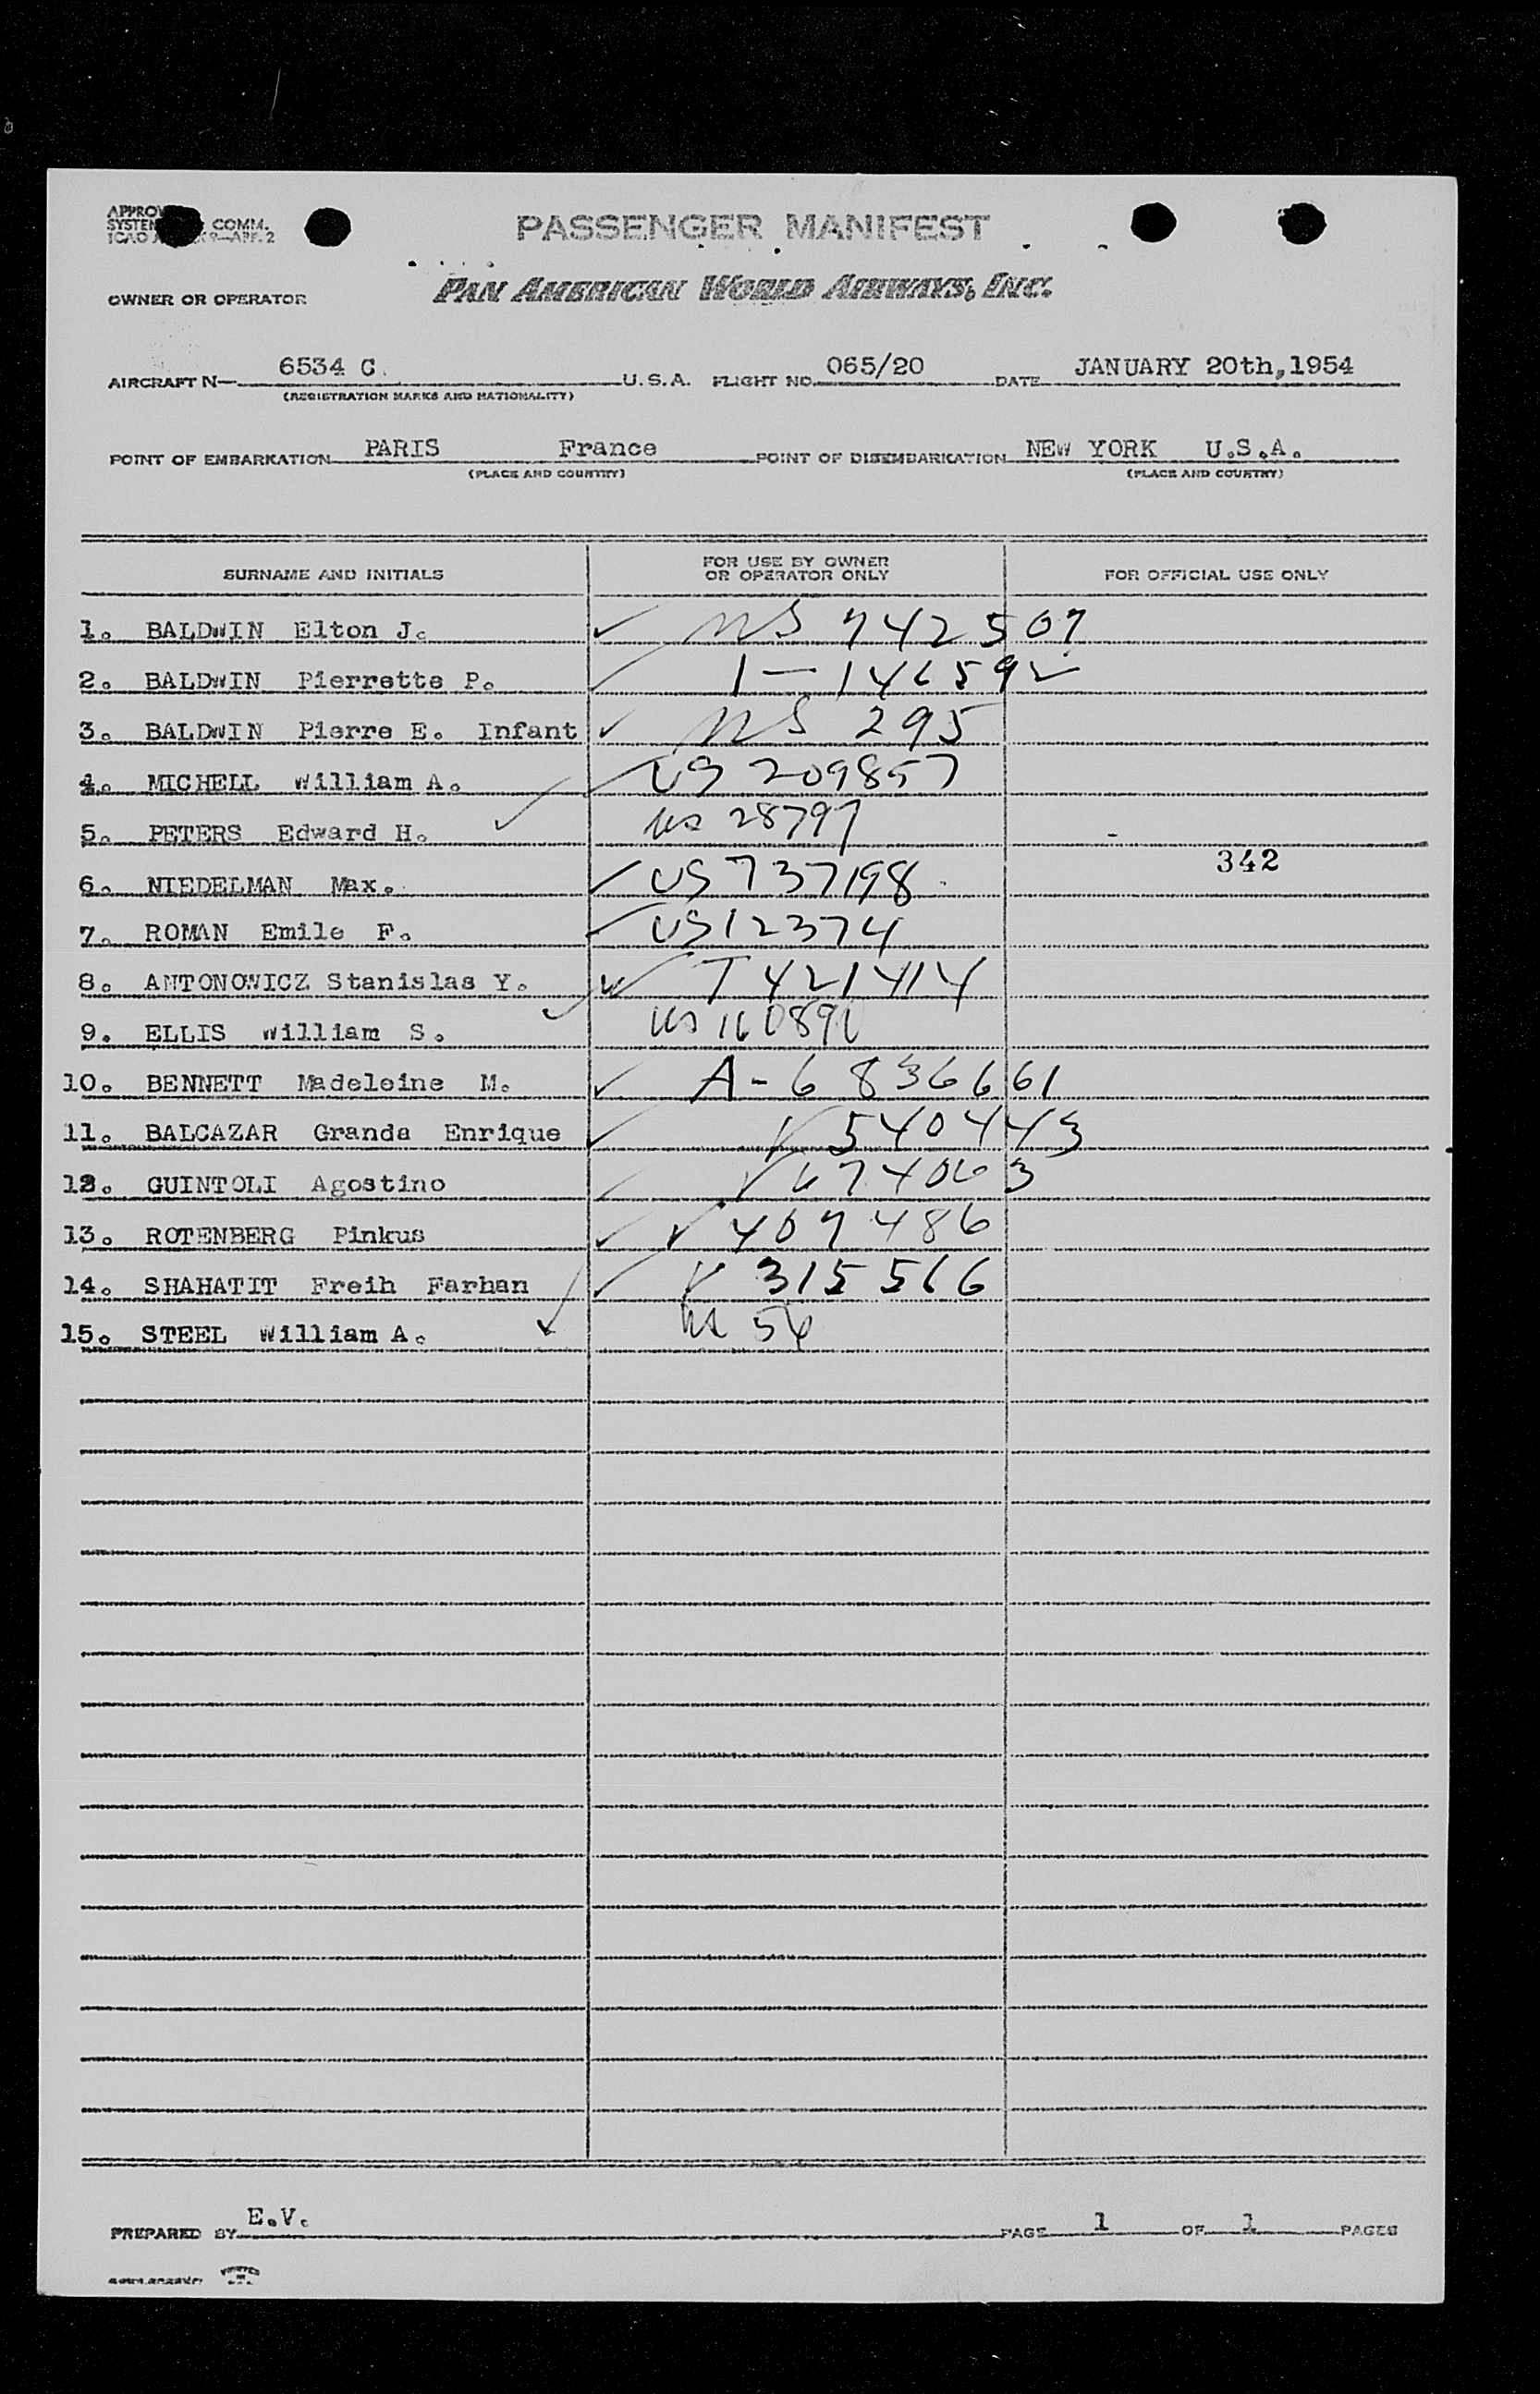 PASSENGER MANIFEST
COMM.
OWNER OR OPERATOR PAN AMERICAN WORLD AIRWAYS, INC.
AIRCRAFT N— 6534 C. U.S.A. FLIGHT NO. 065/20 DATE JANUARY 20th,1954
(REGISTRATION MARKS AND NATIONALITY)
POINT OF EMBARKATION PARIS France POINT OF DISEMBARKATION NEW YORK U.S.A.
(PLACE AND COUNTRY) (PLACE AND COUNTRY)
SURNAME AND INITIALS FOR USE BY OWNER OR OPERATOR ONLY FOR OFFICIAL USE ONLY
1. BALDWIN Elton J. ✓ US 742507
2. BALDWIN Pierrette P. ✓ 1—146592
3. BALDWIN Pierre E. Infant ✓ US 295
4. MICHELL William A. ✓ US 209857
5. PETERS Edward H. ✓ US 28797
342
6. NIEDELMAN Max. ✓ US 737198
7. ROMAN Emile F. ✓ US 12374
8. ANTONOWICZ Stanislas Y. ✓ T 421414
9. ELLIS William S. ✓ US
10. BENNETT Madeleine M. ✓ A-6 836661
11. BALCAZAR Granda Enrique ✓ V 540443
12. GUINTOLI Agostino ✓ V
13. ROTENBERG Pinkus ✓ V 407486
14. SHAHATIT Freih Farhan ✓ V 315566
15. STEEL William A. ✓ US
PREPARED BY E.V. PAGE 1 OF 1 PAGES